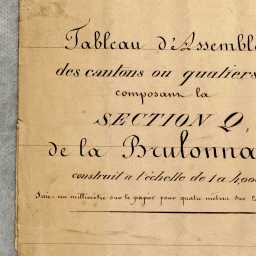 Tableau d'Assembl
des cantons ou quatiers
composant la
SECTION Q,
de la Brulonna
construit a l'échelle de 1 a 4,000
Soit, un millimètre sur le papier pour quatre mètres sur